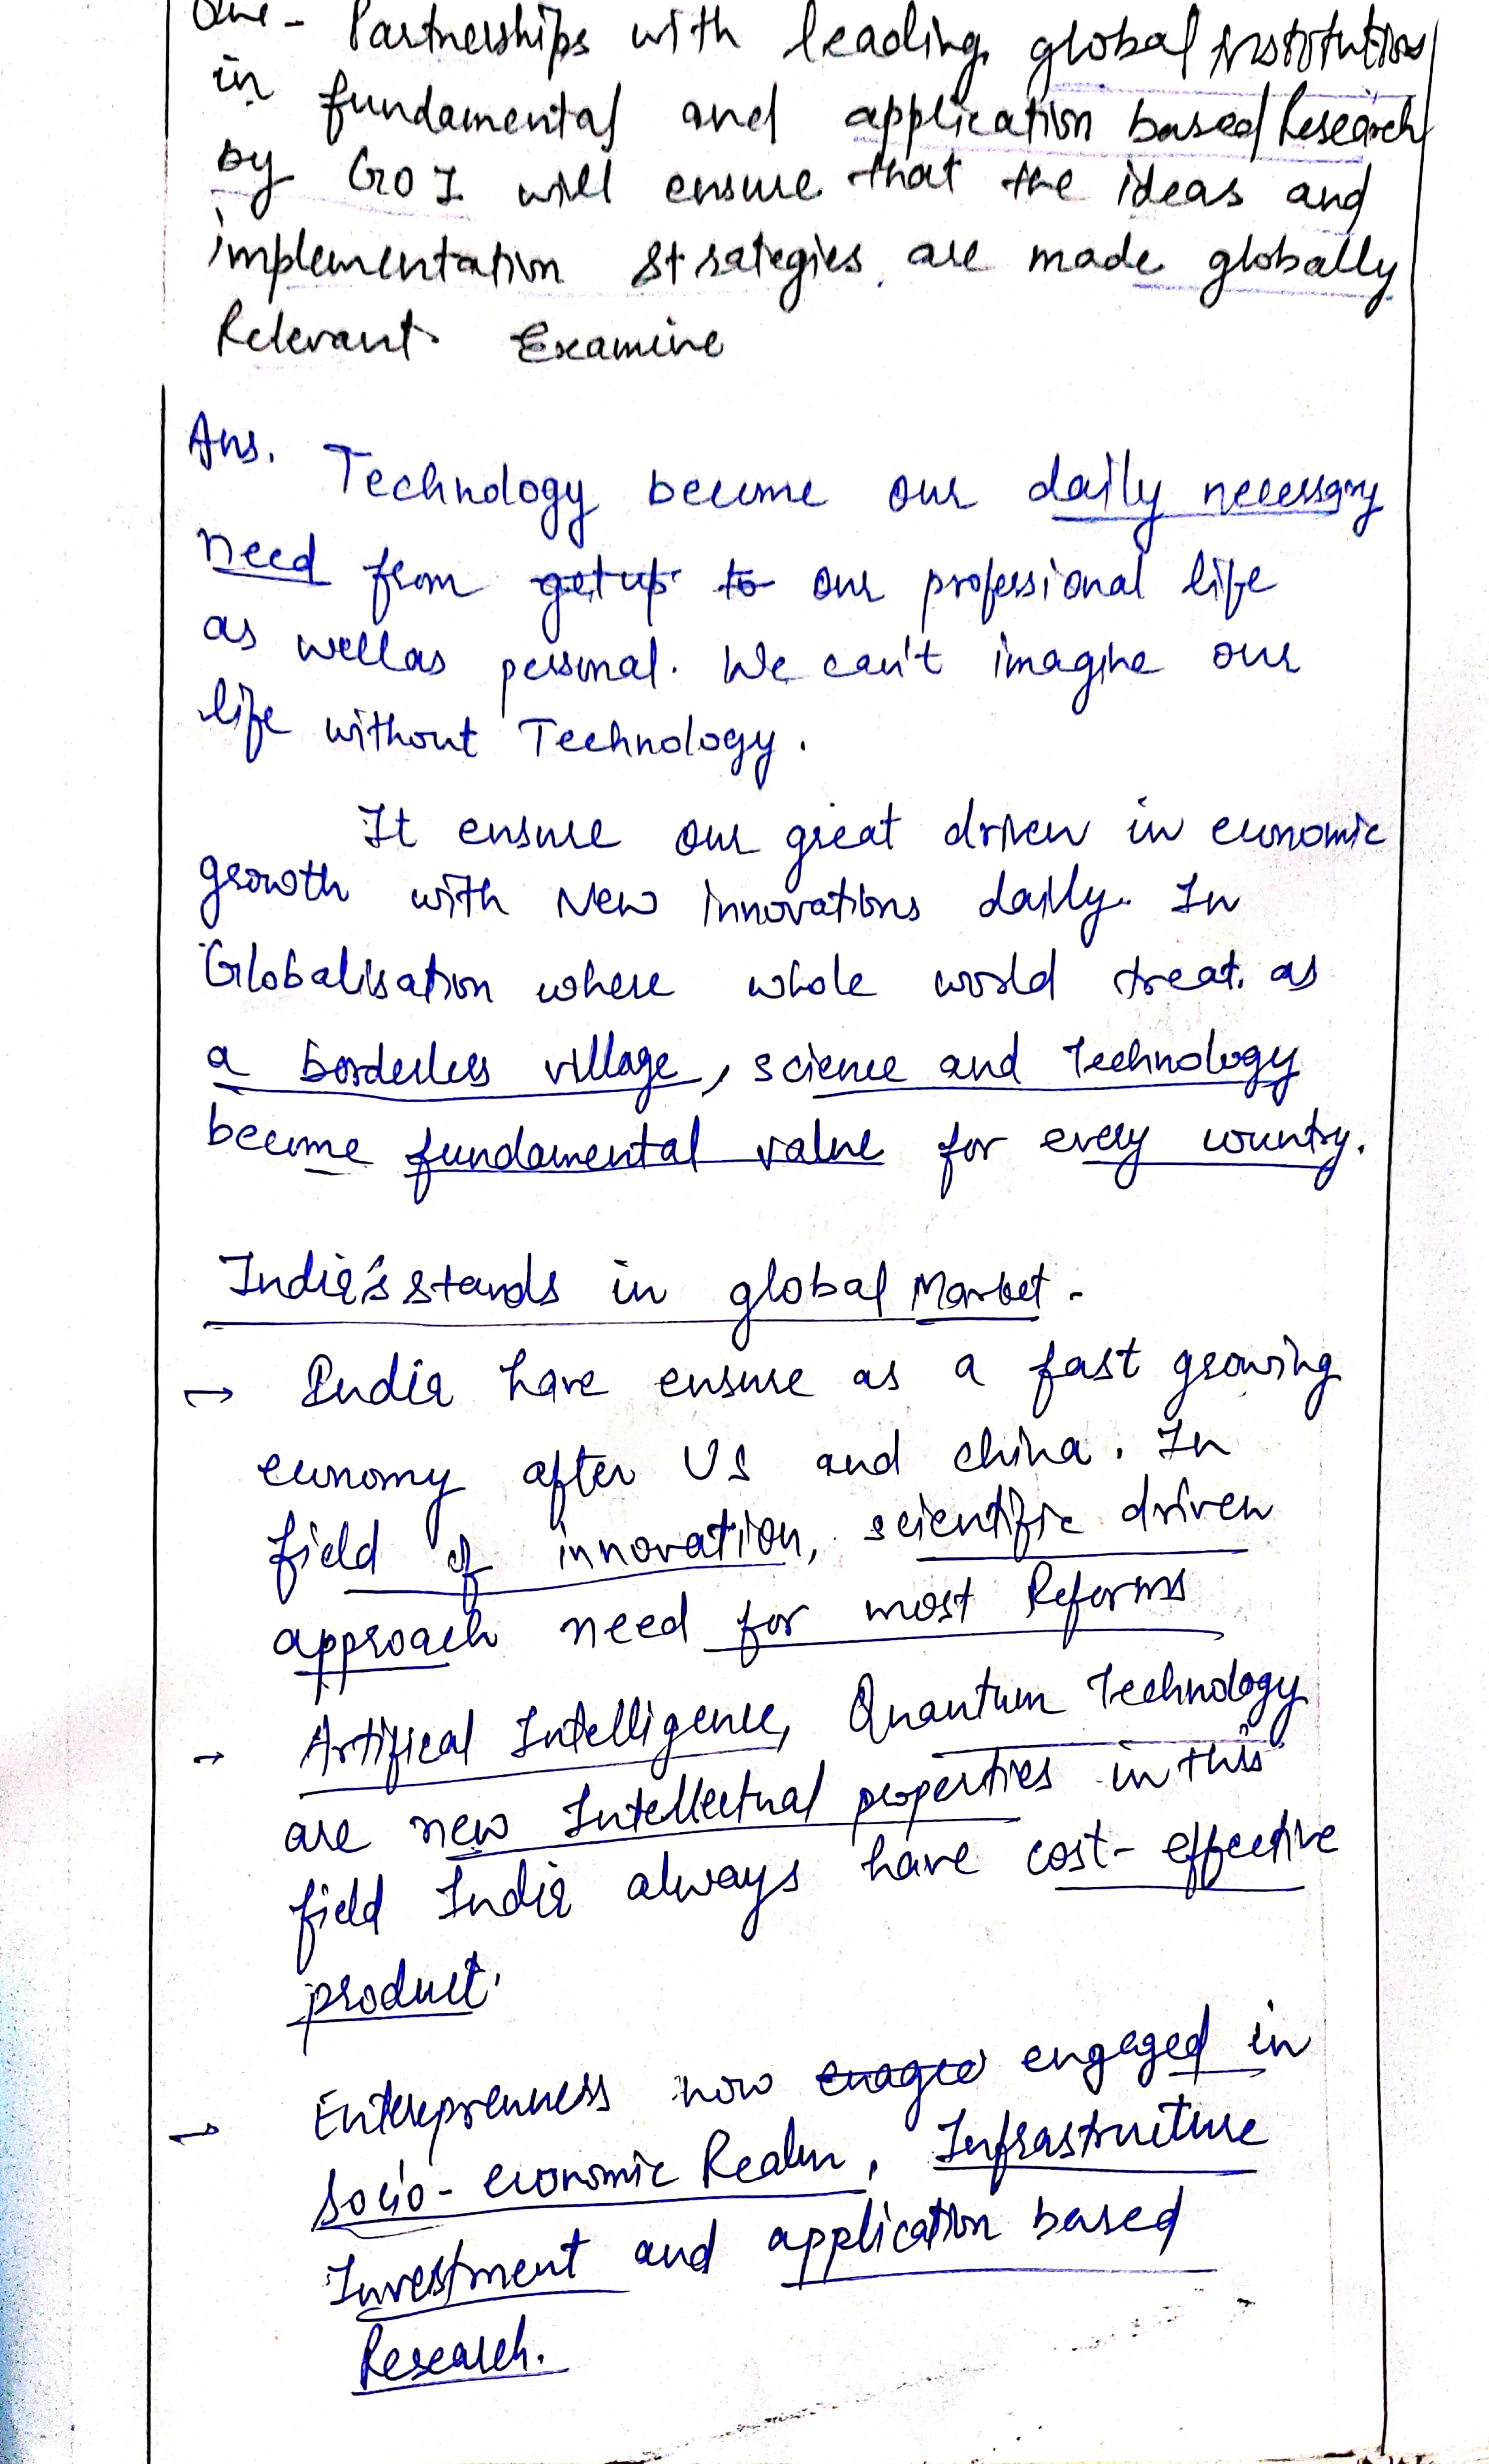 Que - Partnerships with leading global Institutions
in fundamental and application based Research
by GOI will ensure that the ideas and
implementation strategies are made globally
Relevant. Examine
Ans. Technology become our daily necessary
need from getup to our professional life
as well as personal. We can't imagine our
life without Technology.
It ensure our great driven in economic
growth with New innovations daily. In
Globalisation where whole world treat as
a borderless village, science and technology
become fundamental value for every country.
India's stands in global Market -
→ India have ensure as a fast growing
economy after US and china. In
field of innovation, scientific driven
approach need for most Reforms
→ Artifical Intelligence, Quantum Technology
are new Intellectual properties in this
field India always have cost-effective
product.
→ Enterprenness now engaged in
Socio-economic Realm, Infrastructure
Investment and application based
Research.